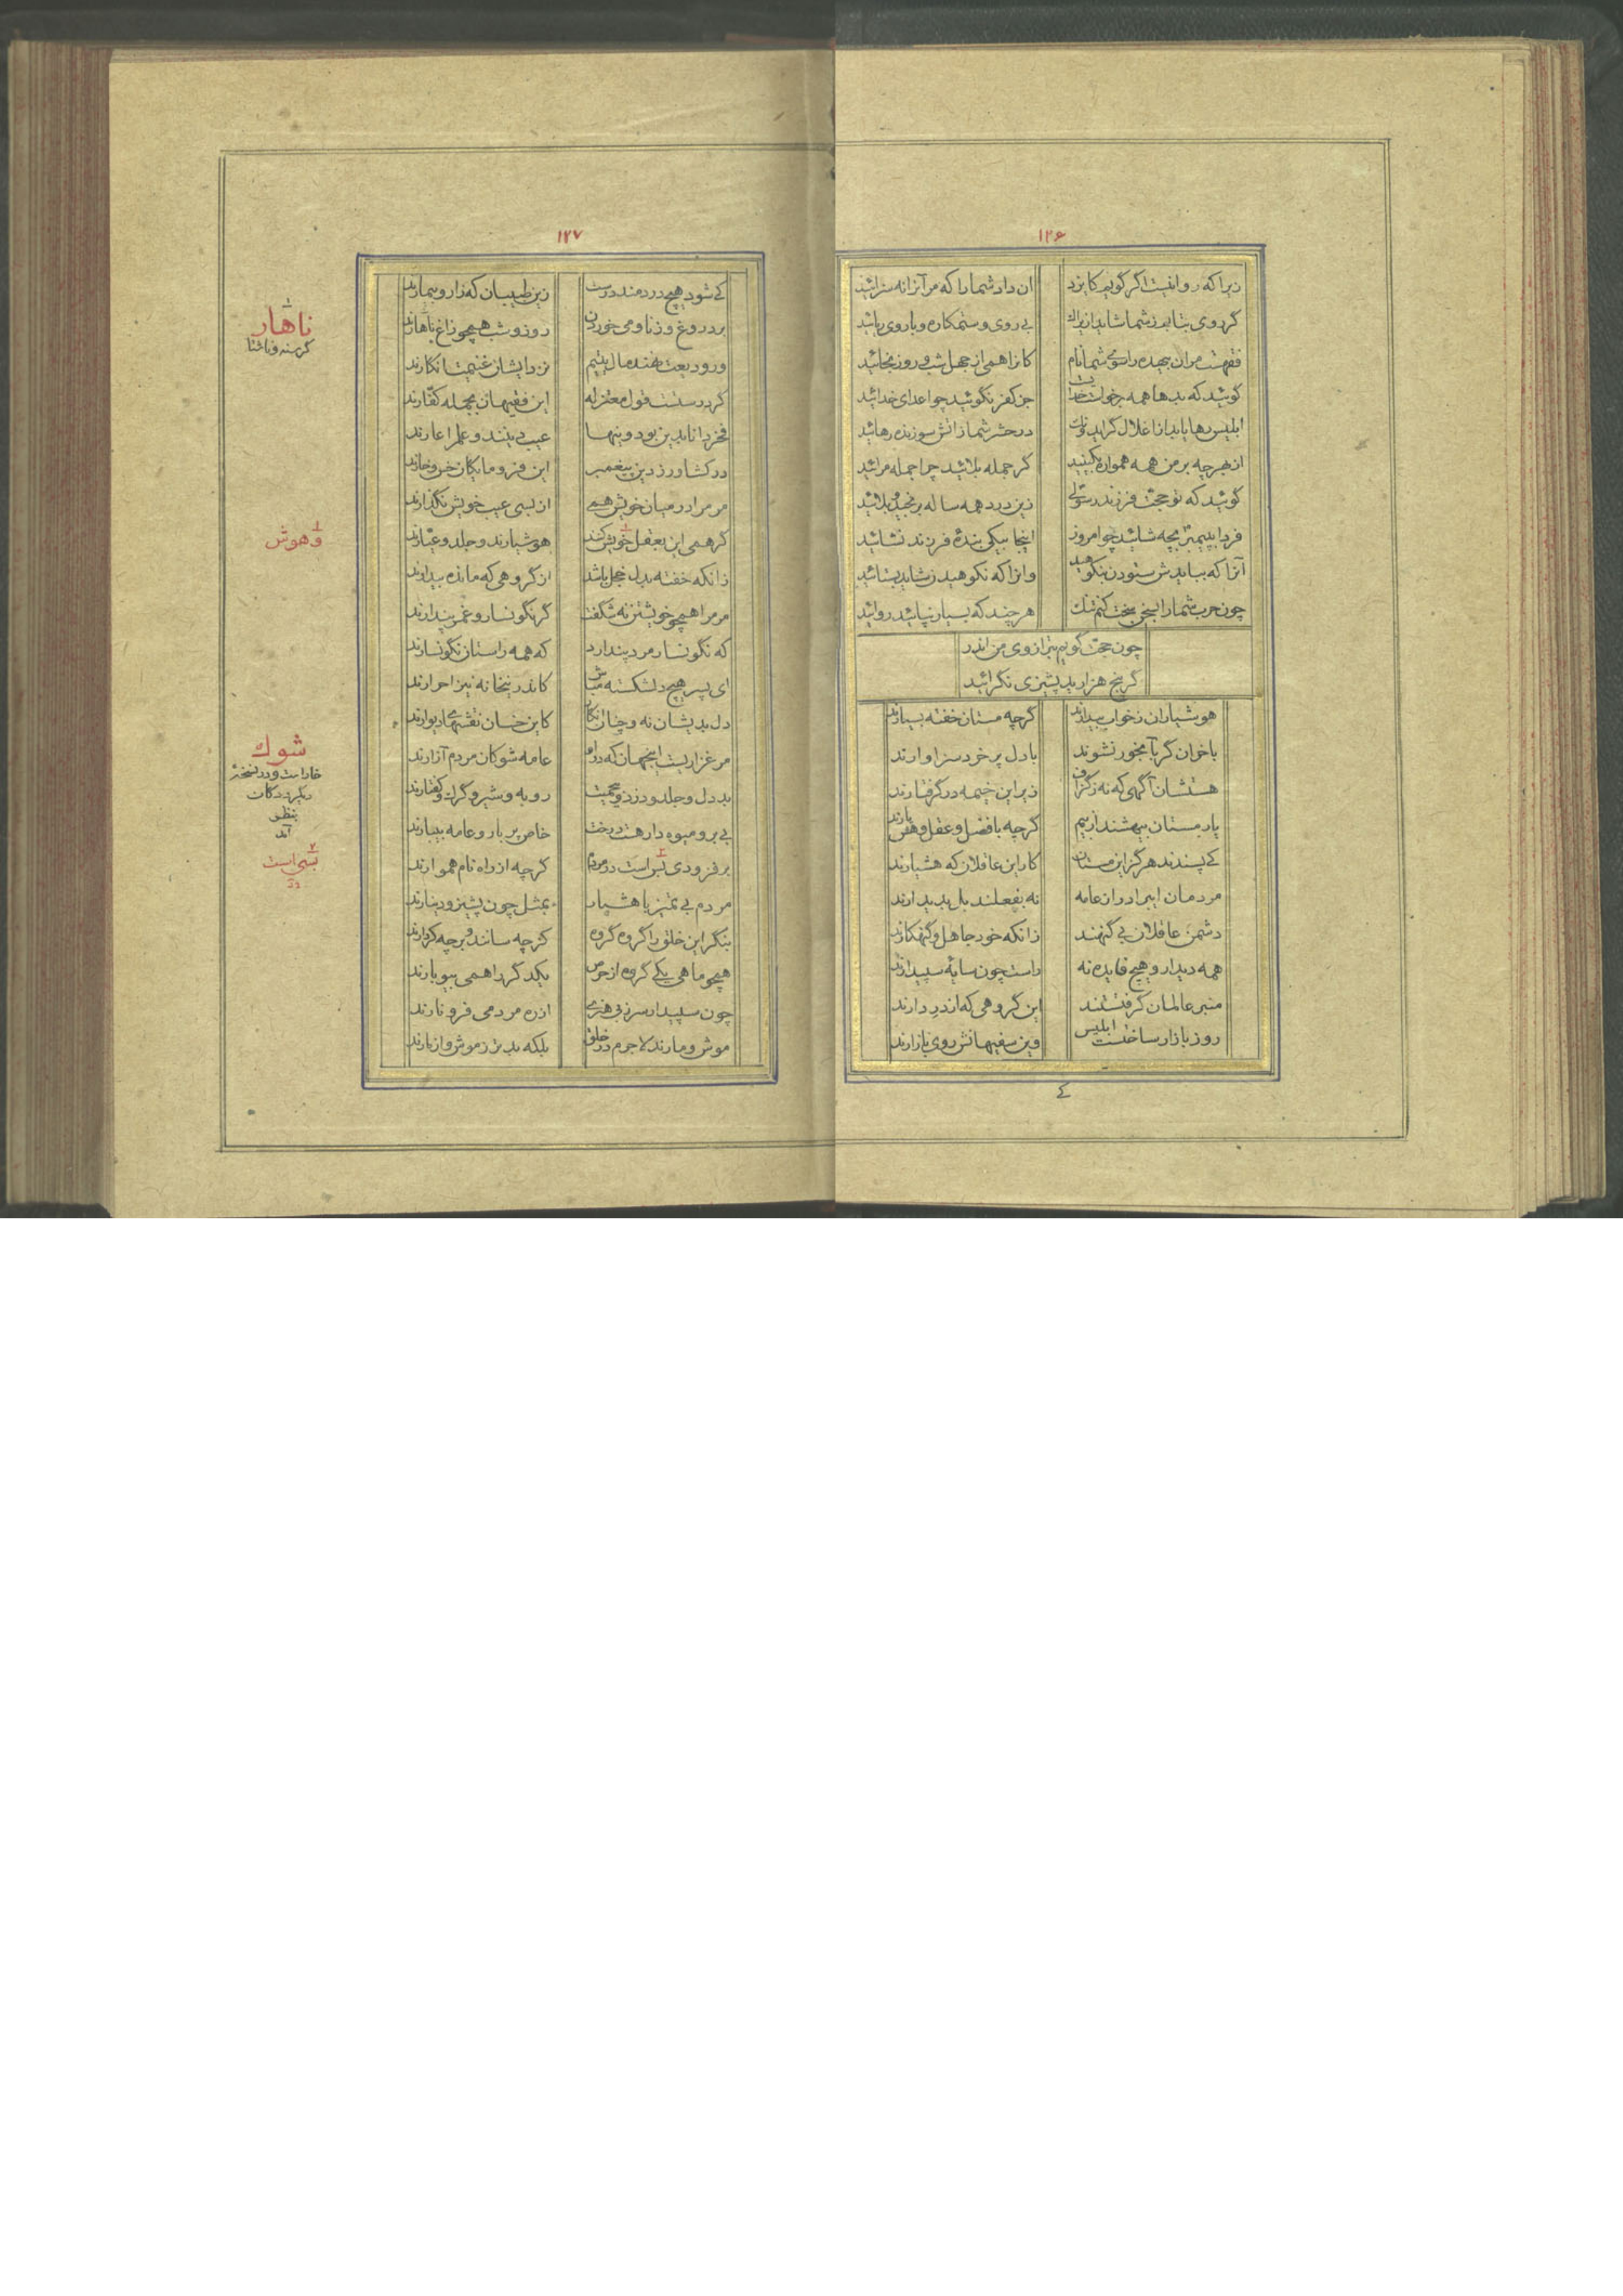 ۱۲۶
زیرا که روا نیست اگر گویم کایزد ان داد شما را که مر آنرا نه سزائید
گر روی بتابم ز شما شاید ازیراک بی روی و ستمکاره و با روی و ریائید
فقهست مر آن بیهده را سوی شما نام کانرا همی از جهل شب و روز بخائید
گوئید که بدها همه بر خواست خدایست جز کفر نگوئید چو اعدای خدائید
ابلیس رها یابد از اغلال گر ایدونک در حشر شما ز اتش سوزنده رهائید
از بهر چه بر من همه همواره بکینید گر جمله بلائید چرا جمله مرائید
گوئید که تو حجت فرزند رسولی زین درد همه ساله برنج و ببلائید
فردا به پیمبر بچه شائید چو امروز اینجا بیکی بندهٔ فرزند نشائید
آنرا که ببایدش ستودن بنکوهید وانرا که نکوهیدن شاید بستائید
چون حرب شما را بسخن سخت کنم تنگ هر چند که بسیار نپائید روائید
چون حجت گویم بترازوی من اندر
گر پنج هزارید پشیزی نگرائید
هوشیاران ز خواب بیدارند گرچه مستان خفته بسیارند
با خوان گر بآبخور نشوند با دل پر خرد سزاوارند
هستشان آگهی که نه ز گزاف زیر این خیمه در گرفتارند
یار مستان بیهشند از بیم گرچه با فضل و عقل و هش یارند
کی پسندند هرگز این مستان کار این عاقلان که هشیارند
مردمان ای برادر از عامه نه بفعلند بل بدیدارند
دشمن عاقلان بی گنهند زانکه خود جاهل و گنهکارند
همه دیدار و هیچ فایده نه راست چون سایهٔ سپیدارند
منبر عالمان گرفتستند این گروهی که از در دارند
روز بازار ساختست ابلیس وین سفیهانش روی بازارند
۱۲۷
کی شود هیچ دردمند درست زین طبیبان که زار و بیمارند
بر دروغ و زنا و می خوردن روز و شب همچو زاغ ناهارند
ور ودیعت نهند مال یتیم نزد ایشان غنیمت انگارند
گر درستست قول معتزله این فقیهان بجمله کفارند
فخر دانا بدین بود وینها عیب دینند و علم را عارند
در کشاورز دین پیغمبر این فرومایگان خس و خارند
مر مرا در میان خویش همی از بسی عیب خویش نگذارند
گر همی این بعقل خویش کنند هوشیارند و جلد و عیارند
زانکه خفته بدل خجل باشد از گروهی که مانده بیدارند
مر مرا همچو خویشتن نه شگفت گر نگونسار و غمر پندارند
که نگونسار مرد پندارد که همه راستان نگونسارند
ای پسر هیچ دلشکسته مباش کاندرین خانه نیز احرارند
دل بدیشان نه و چنان انگار کاین خسان نقشهای دیوارند
مرغزاریست این جهان که درو عامه شوکان مردم آزارند
بد دل و جلد و دزد و بی حمیت روبه و شیر و گرگ و کفتارند
بی بر و میوه دار هست درخت خاص پر بار و عامه بی بارند
بر فزودی بس است در مردم گرچه از راه نام هموارند
مردم بی تمیز با هشیار بمثل چون پشیز و دینارند
بنگر این خلق را گروه گروه گرچه سانند و بر چه کردارند
همچو ماهی یکی گروه از حرص یکدگر را همی بیوبارند
چون سپیدار سر ز بی هنری از ره مردمی فرو نارند
موش و مارند لاجرم در خلق بلکه بدتر ز موش و از مارند
ناهار
گرسنه و ناشتا
وهوش
شوک
خار است و در نسخهٔ
دیگر در کات
بنظر
آمد
بسی است
در